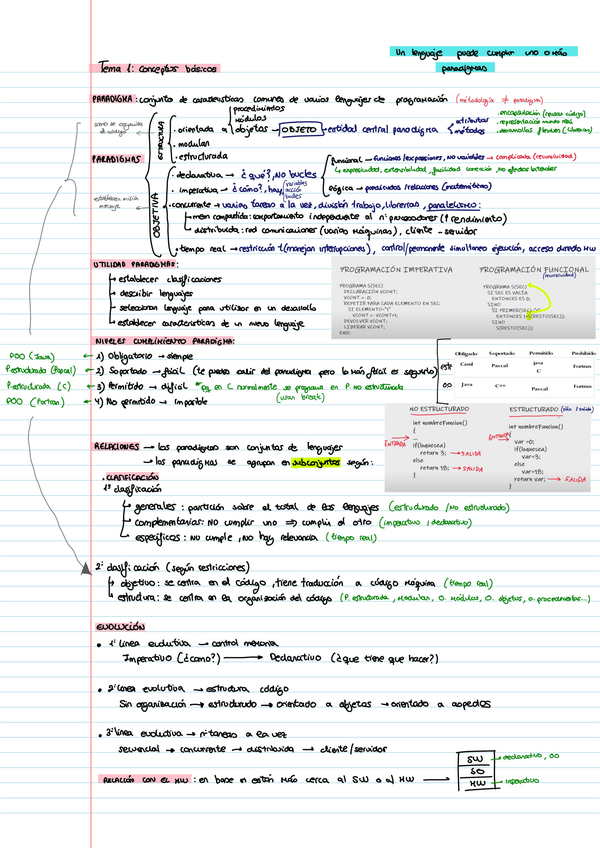 Un lenguaje puede cumplir uno o más
paradigmas
Tema 1: Conceptos básicos
PARADIGMA: conjunto de características comunes de varios lenguajes de programación (metodología ≠ paradigma)
PARADIGMAS
ESTRUCTURA
procedimientos
módulos
· orientada a objetos → OBJETO → entidad central paradigma
atributos
métodos
· modular
· estructurada
establecen misión
OBJETIVA
· declarativa → ¿qué?, NO bucles
funcional → funciones/expresiones, NO variables → complicada (recursividad)
lógica → predicados/relaciones (matemáticas)
· imperativa → ¿cómo?, hay
variables
acción
bucles
· concurrente → varias tareas a la vez, división trabajo, librerías, paralelismo:
mem compartida: comportamiento independiente al nº procesadores (↑ rendimiento)
distribuida: red comunicaciones (varias máquinas), cliente - servidor
· tiempo real → restricción t (manejan interrupciones), control/permanente simultaneo ejecución, acceso directo HW
UTILIDAD PARADIGMAS:
establecer clasificaciones
describir lenguajes
seleccionar lenguaje para utilizar en un desarrollo
establecer características de un nuevo lenguaje
PROGRAMACIÓN IMPERATIVA
PROGRAMA S(SEC)
DECLARACIÓN VCONT;
VCONT <- 0;
REPETIR PARA CADA ELEMENTO EN SEC:
SI ELEMENTO="1"
VCONT <- VCONT+1;
DEVOLVER VCONT;
LIBERAR VCONT;
END;
PROGRAMACIÓN FUNCIONAL
(recursividad)
PROGRAMA S(SEC)
SI SEC ES VACÍA
ENTONCES ES 0;
SINO
SI PRIMER(SEC)="1"
ENTONCES 1+S(RESTO(SEC));
SINO
S(RESTO(SEC));
NIVELES CUMPLIMIENTO PARADIGMA:
POO (Java) ← 1) Obligatorio → siempre
P.estructurada (Pascal) ← 2) Soportado → fácil (te puedes salir del paradigma pero lo más fácil es seguirlo)
P.estructurada (C) ← 3) Permitido → difícil
en C normalmente se programa en P. no estructurada
(usar break)
POO (Fortran) ← 4) No permitido → imposible
Obligado Soportado Permitido Prohibido
estr Caml Pascal Java C Fortran
OO Java C++ Pascal Fortran
NO ESTRUCTURADO
int nombreFuncion()
{
...
if(loquesea)
return 3; → SALIDA
else
return 18; → SALIDA
}
ENTRADA
ESTRUCTURADO (sólo 1 salida)
int nombreFuncion()
{
var =0;
if(loquesea)
var=3;
else
var=18;
return var; → SALIDA
}
ENTRADA
RELACIONES → los paradigmas son conjuntos de lenguajes
→ los paradigmas se agrupan en subconjuntos según:
· CLASIFICACIÓN
1ª clasificación
generales: partición sobre el total de los lenguajes (estructurado / No estructurado)
complementarias: NO cumplir uno ⇒ cumplir el otro (imperativo / declarativo)
específicos: NO cumple, NO hay relevancia (tiempo real)
2ª clasificación (según restricciones)
objetivo: se centra en el código, tiene traducción a código máquina (tiempo real)
estructura: se centra en la organización del código (P. estructurada, Modular, O. Módulos, O. objetos, O. procedimientos...)
EVOLUCIÓN
· 1ª línea evolutiva → control memoria
Imperativo (¿cómo?) → Declarativo (¿que tiene que hacer?)
· 2ª línea evolutiva → estructura código
Sin organización → estructurado → orientado a objetos → orientado a aspectos
· 3ª línea evolutiva → nº tareas a la vez
secuencial → concurrente → distribuida → cliente/servidor
RELACIÓN CON EL HW: en base si están más cerca al SW o al HW →
SW → declarativo, OO
SO
HW → imperativo